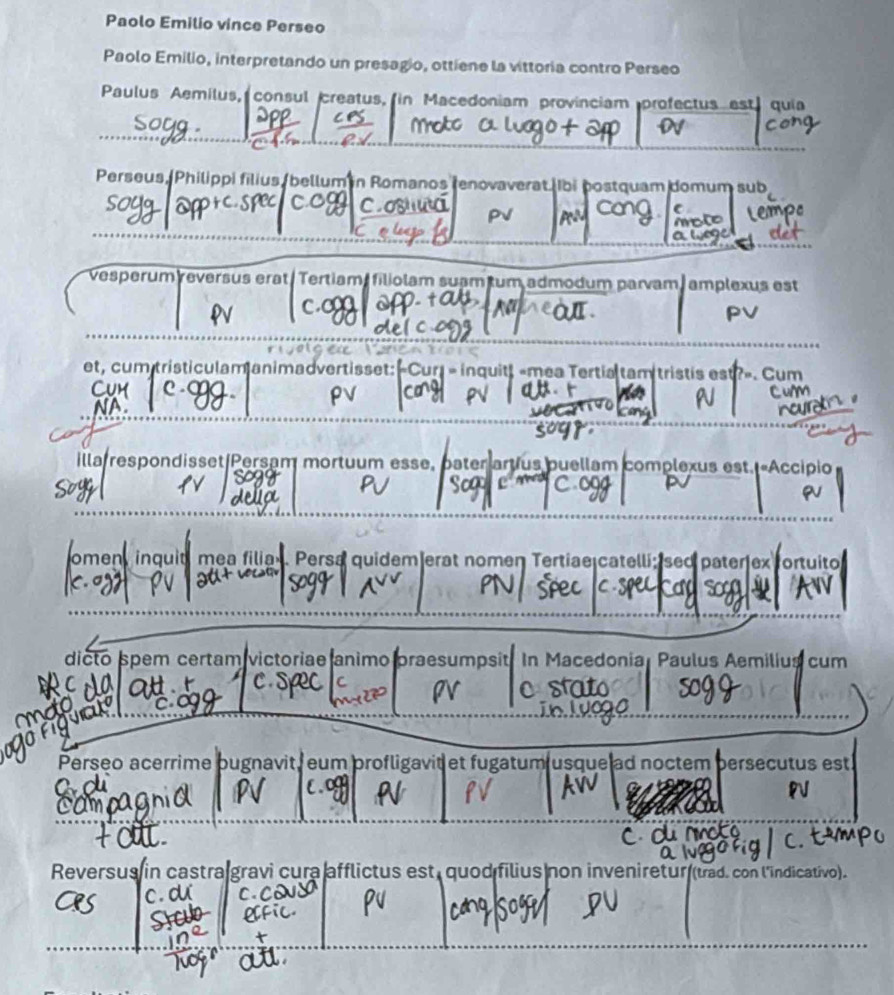 Paolo Emilio vince Perseo
Paolo Emilio, interpretando un presagio, ottiene la vittoria contro Perseo
Paulus Aemilus, consul creatus, in Macedoniam provinciam profectus est, quia
sogg. app cps moto a luogo + app PV cong
P.V.
Perseus, Philippi filius, bellum in Romanos renovaverat. Ibi postquam domum sub
sogg app+c.spec c.ogg c.ostilità PV AVV cong. c. moto a luogo tempo
det
vesperum reversus erat, Tertiam, filiolam suam tum admodum parvam, amplexus est
PV c.ogg app. + att. att. PV
del c.ogg
et, cum tristiculam animadvertisset: «Cur, - inquit, «mea Tertia, tam tristis est?». Cum
CUM c.ogg. PV cong PV att. + vocativo PN cum
NA. cong narrativo
cong sogg. cong
illa respondisset Persam mortuum esse, pater artius puellam complexus est. «Accipio
sogg PV sogg PV sogg c. mod c.ogg PV PV
della
omen, inquit, mea filia». Persa quidem erat nomen Tertiae catelli; sed pater ex fortuito
c.ogg PV att+vocativo sogg AVV PN spec c.spec cong sogg AVV
dicto spem certam victoriae animo praesumpsit. In Macedonia, Paulus Aemilius cum
c da att. + c.spec c PV c stato sogg
moto c.ogg mezzo in luogo
luogo figurato
Perseo acerrime pugnavit, eum profligavit et fugatum usque ad noctem persecutus est.
c. di PV c.ogg PV PV AVV PV
compagnia
+ att. c. di moto
a luogo fig / c. tempo
Reversus in castra gravi cura afflictus est, quod filius non inveniretur (trad. con l'indicativo).
cps c. di c. causa PV cong sogg PV
stato effic.
in +
luogo att.